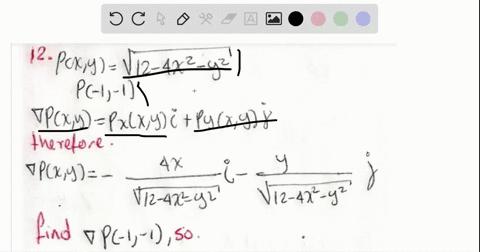 12. P(x,y) = √12-4x²-y²
P(-1,-1)
∇P(x,y) = Px(x,y)i + Py(x,y)j
therefore.
∇P(x,y) = - 4x/√12-4x²-y² i - y/√12-4x²-y² j
find ∇P(-1,-1), so.